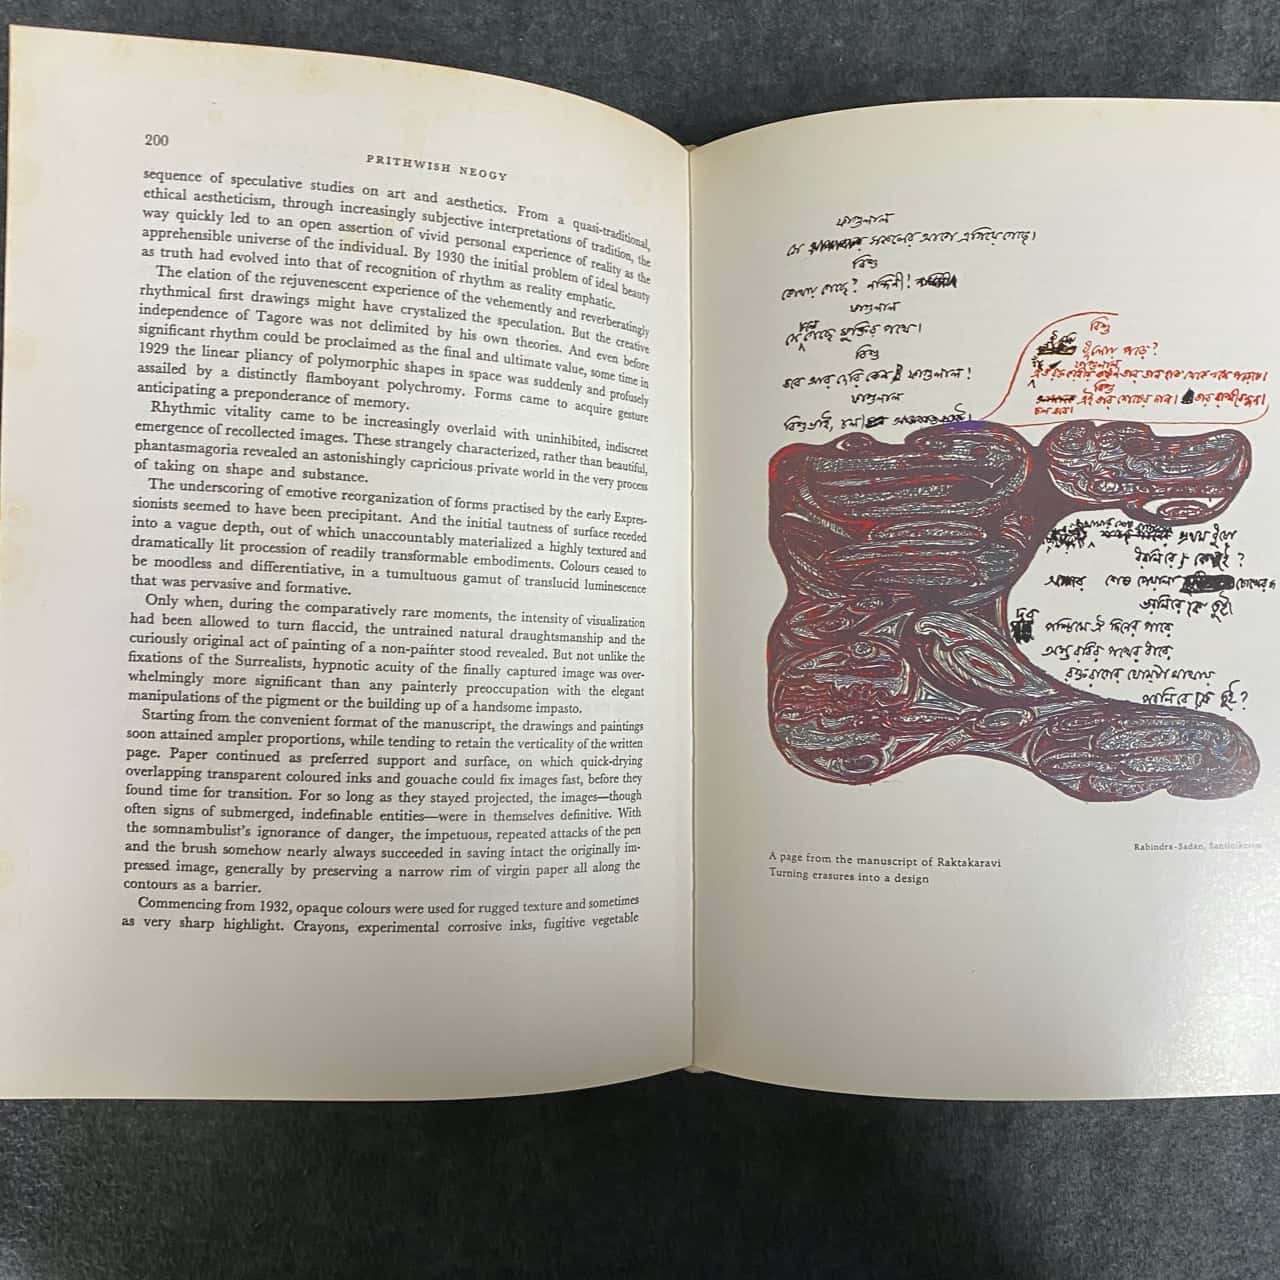 200
PRITHWISH NEOGY
sequence of speculative studies on art and aesthetics. From a quasi-traditional,
ethical aestheticism, through increasingly subjective interpretations of tradition, the
way quickly led to an open assertion of vivid personal experience of reality as the
apprehensible universe of the individual. By 1930 the initial problem of ideal beauty
as truth had evolved into that of recognition of rhythm as reality emphatic.
The elation of the rejuvenescent experience of the vehemently and reverberatingly
rhythmical first drawings might have crystalized the speculation. But the creative
independence of Tagore was not delimited by his own theories. And even before
significant rhythm could be proclaimed as the final and ultimate value, some time in
1929 the linear pliancy of polymorphic shapes in space was suddenly and profusely
assailed by a distinctly flamboyant polychromy. Forms came to acquire gesture
anticipating a preponderance of memory.
Rhythmic vitality came to be increasingly overlaid with uninhibited, indiscreet
emergence of recollected images. These strangely characterized, rather than beautiful,
phantasmagoria revealed an astonishingly capricious private world in the very process
of taking on shape and substance.
The underscoring of emotive reorganization of forms practised by the early Expres-
sionists seemed to have been precipitant. And the initial tautness of surface receded
into a vague depth, out of which unaccountably materialized a highly textured and
dramatically lit procession of readily transformable embodiments. Colours ceased to
be moodless and differentiative, in a tumultuous gamut of translucid luminescence
that was pervasive and formative.
Only when, during the comparatively rare moments, the intensity of visualization
had been allowed to turn flaccid, the untrained natural draughtsmanship and the
curiously original act of painting of a non-painter stood revealed. But not unlike the
fixations of the Surrealists, hypnotic acuity of the finally captured image was over-
whelmingly more significant than any painterly preoccupation with the elegant
manipulations of the pigment or the building up of a handsome impasto.
Starting from the convenient format of the manuscript, the drawings and paintings
soon attained ampler proportions, while tending to retain the verticality of the written
page. Paper continued as preferred support and surface, on which quick-drying
overlapping transparent coloured inks and gouache could fix images fast, before they
found time for transition. For so long as they stayed projected, the images—though
often signs of submerged, indefinable entities—were in themselves definitive. With
the somnambulist's ignorance of danger, the impetuous, repeated attacks of the pen
and the brush somehow nearly always succeeded in saving intact the originally im-
pressed image, generally by preserving a narrow rim of virgin paper all along the
contours as a barrier.
Commencing from 1932, opaque colours were used for rugged texture and sometimes
as very sharp highlight. Crayons, experimental corrosive inks, fugitive vegetable
ফাগুলাল
সে সকলের আগে এগিয়ে গেছে।
বিশু
কোথায় গেছে? নন্দিনী!
ফাগুলাল
সে গেছে মুক্তির পথে।
বিশু
তবে আর দেরি কেন ফাগুলাল!
ফাগুলাল
বিশুভাই, চল।
বিশু
ধুলোয় পড়ে?
ফাগুলাল
বিশু
প্রথম
শেষ পেয়ালা চোখের
পশ্চিমে ঐ দিনের পারে
অস্তরবির পথের ধারে
রক্তরাগের ঘোমটা মাথায়
পরলিরে কে তুই?
Rabindra-Sadan, Santiniketan
A page from the manuscript of Raktakaravi
Turning erasures into a design